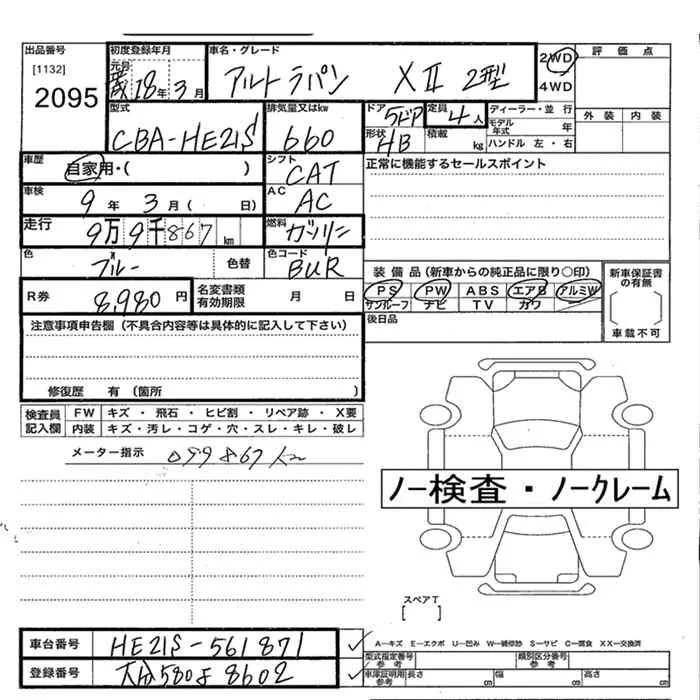 出品番号 初度登録年月 車名・グレード 2WD 評価点
[1132] 元号 18年 3月 アルトラパン XⅡ 2型 4WD
2095
型式 排気量又はkw ドア 5ドア 定員 4人 ディーラー・並行 外装 内装
CBA-HE21S 660 形状 HB 積載 kg モデル年式 年
ハンドル 左・右
車歴 自家用・( ) シフト CAT 正常に機能するセールスポイント
車検 9年 3月( 日) AC AC
走行 9万9千867km 燃料 ガソリン
色 ブルー 色替 色コード BUR 装備品(新車からの純正品に限り○印) 新車保証書の有無
R券 8,980円 名変書類有効期限 月 日 PS PW ABS エアB アルミW
サンルーフ ナビ TV カワ 車載不可
注意事項申告欄(不具合内容等は具体的に記入して下さい) 後日品
修復歴 有(箇所 )
検査員記入欄 FW キズ・飛石・ヒビ割・リペア跡・X要
内装 キズ・汚レ・コゲ・穴・スレ・キレ・破レ
メーター指示 099867km
ノー検査・ノークレーム
スペアT
[ ]
車台番号 HE21S-561871
登録番号 大分580よ8602
A―キズ E―エクボ U―凹み W―補修跡 S―サビ C―腐食 XX―交換済
型式指定番号 参考 類別区分番号 参考
車庫証明用 参考 長さ cm 幅 cm 高さ cm